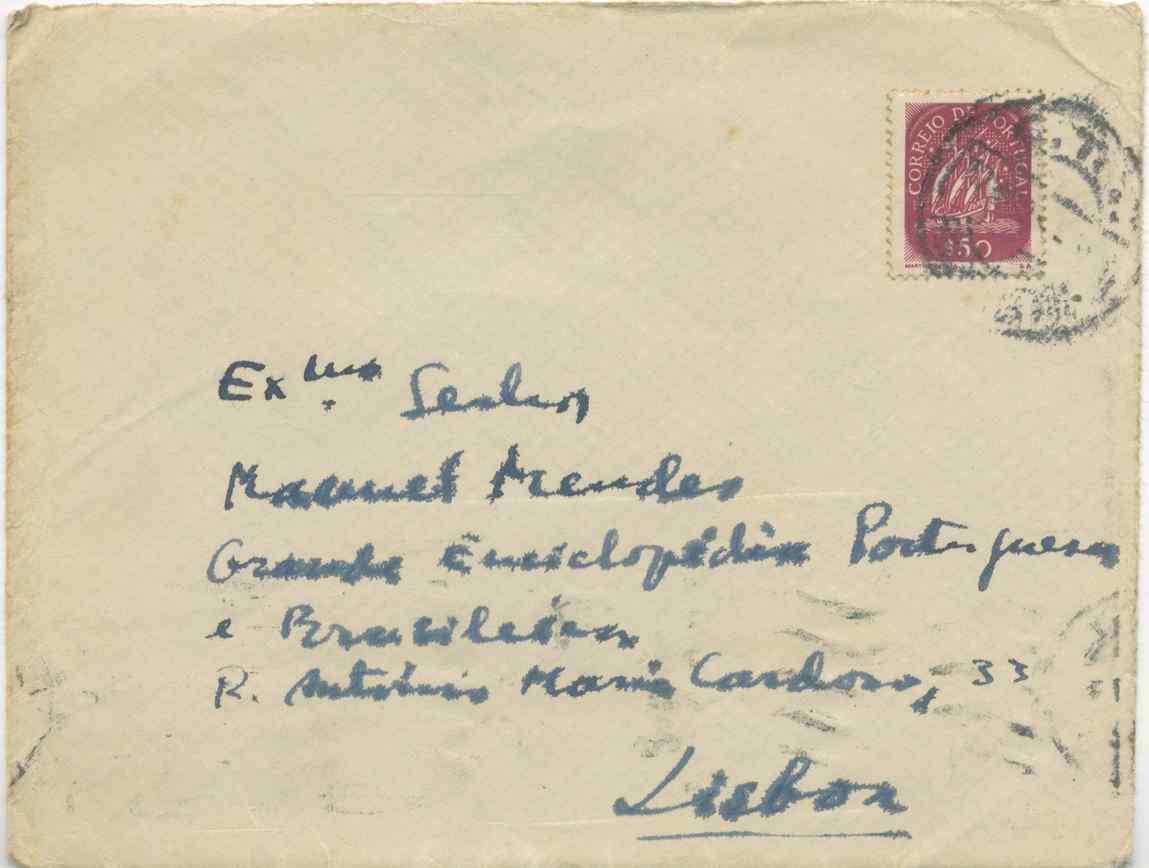 CORREIO DE PORTUGAL
$50
C.T.T.
Ex.mo Senhor
Manuel Mendes
Grande Enciclopédia Portuguesa
e Brasileira
R. António Maria Cardoso, 33
Lisboa